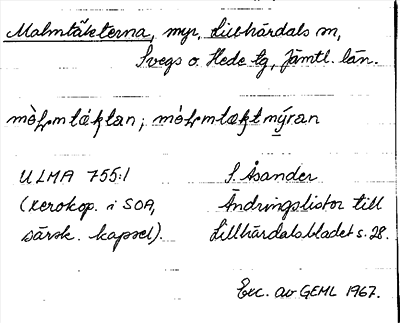 Malmtäkterna, myr, Lillhärdals sn,
Svegs o. Hede tg, Jämtl. län.
ULMA 755:1 S. Åsander
(xerokop. i SOA, Ändringslistor till
särsk. kapsel). Lillhärdalsbladet s. 28.
Exc. av GEML 1967.